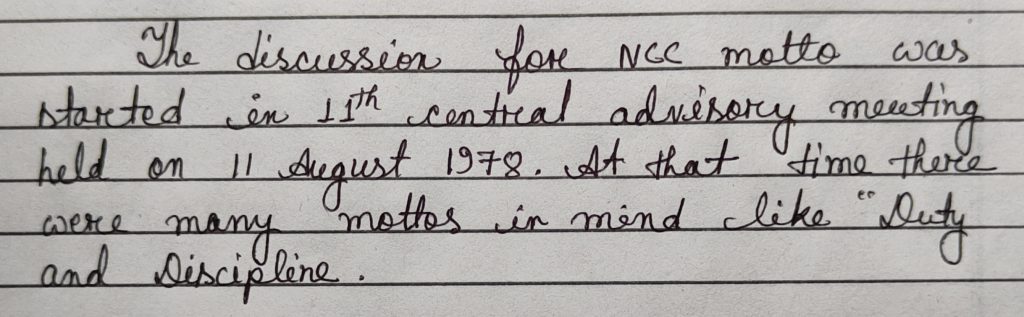 The discussion for NCC motto was
started in 11th central advisory meeting
held on 11 August 1978. At that time there
were many mottos in mind like "Duty
and Discipline.